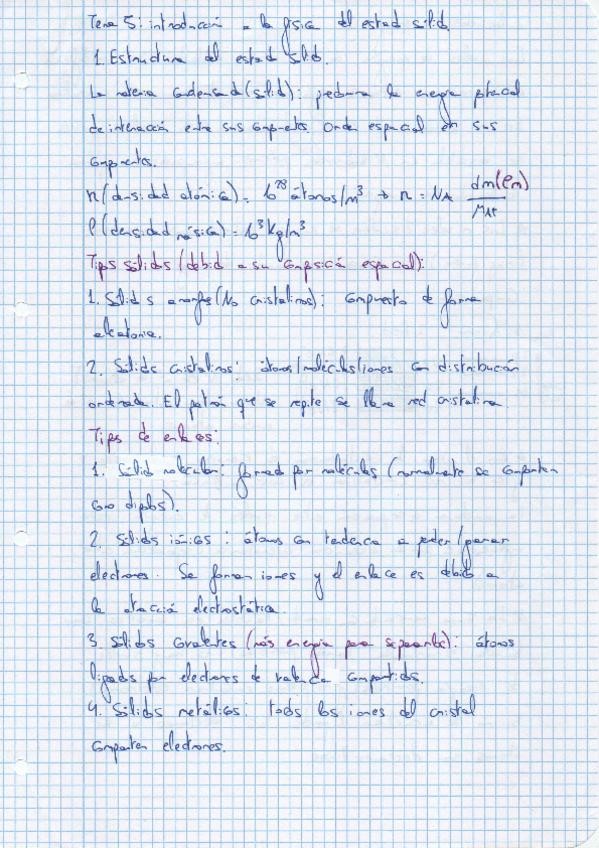 Tema 5: introducción a la física del estado sólido.
1. Estructura del estado sólido.
La materia condensada (sólido): predomina la energía potencial
de interacción entre sus componentes. Orden espacial en sus
componentes.
n (densidad atómica) = 10²⁸ átomos/m³ → n = NA dm(ρm) / MAt
ρ (densidad másica) = 10³ Kg/m³
Tipos sólidos (debido a su composición espacial):
1. Sólidos amorfos (No cristalinos): compuesto de forma
aleatoria.
2. Sólidos cristalinos: átomos/moléculas/iones con distribución
ordenada. El patrón que se repite se llama red cristalina
Tipos de enlaces:
1. Sólido molecular: formado por moléculas (normalmente se comportan
como dipolos).
2. Sólidos iónicos: átomos con tendencia a perder/ganar
electrones. Se forman iones y el enlace es debido a
la atracción electrostática.
3. Sólidos covalentes (más energía para separarlos): átomos
ligados por electrones de valencia compartidos.
4. Sólidos metálicos: todos los iones del cristal
comparten electrones.